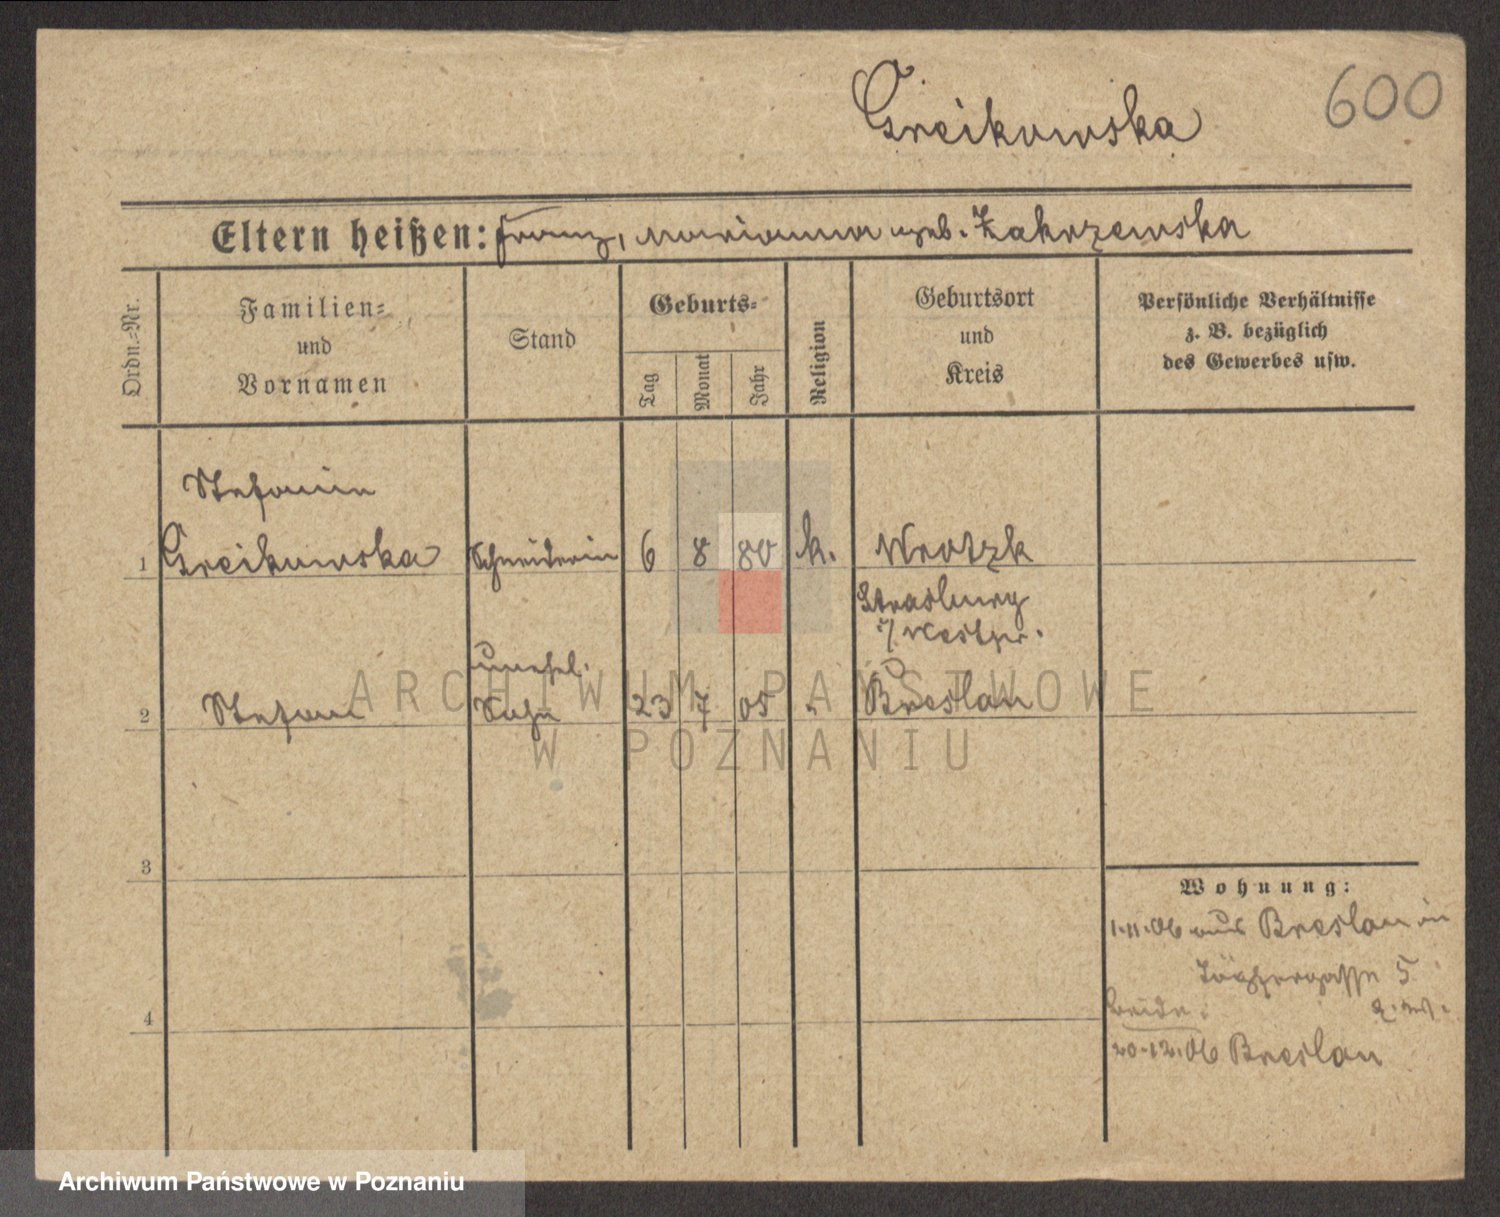 Greikowska
600
Eltern heißen: Franz, Marianna geb. Zakrzewska
Ordn.=Nr.
Familien=
und
Vornamen
Stand
Geburts=
Tag
Monat
Jahr
Religion
Geburtsort
und
Kreis
Persönliche Verhältnisse
z. B. bezüglich
des Gewerbes usw.
Stefanie
1 Greikowska Schneiderin 6 8 80 k. Wrotzk
Strasburg
i/Westpr.
unehel.
2 Stefan Sohn 23 7 05 " Breslau
3
4
Wohnung:
1.11.06 aus Breslau in
5
beide
20.12.06 Breslau
ARCHIWUM PAŃSTWOWE
W POZNANIU
Archiwum Państwowe w Poznaniu